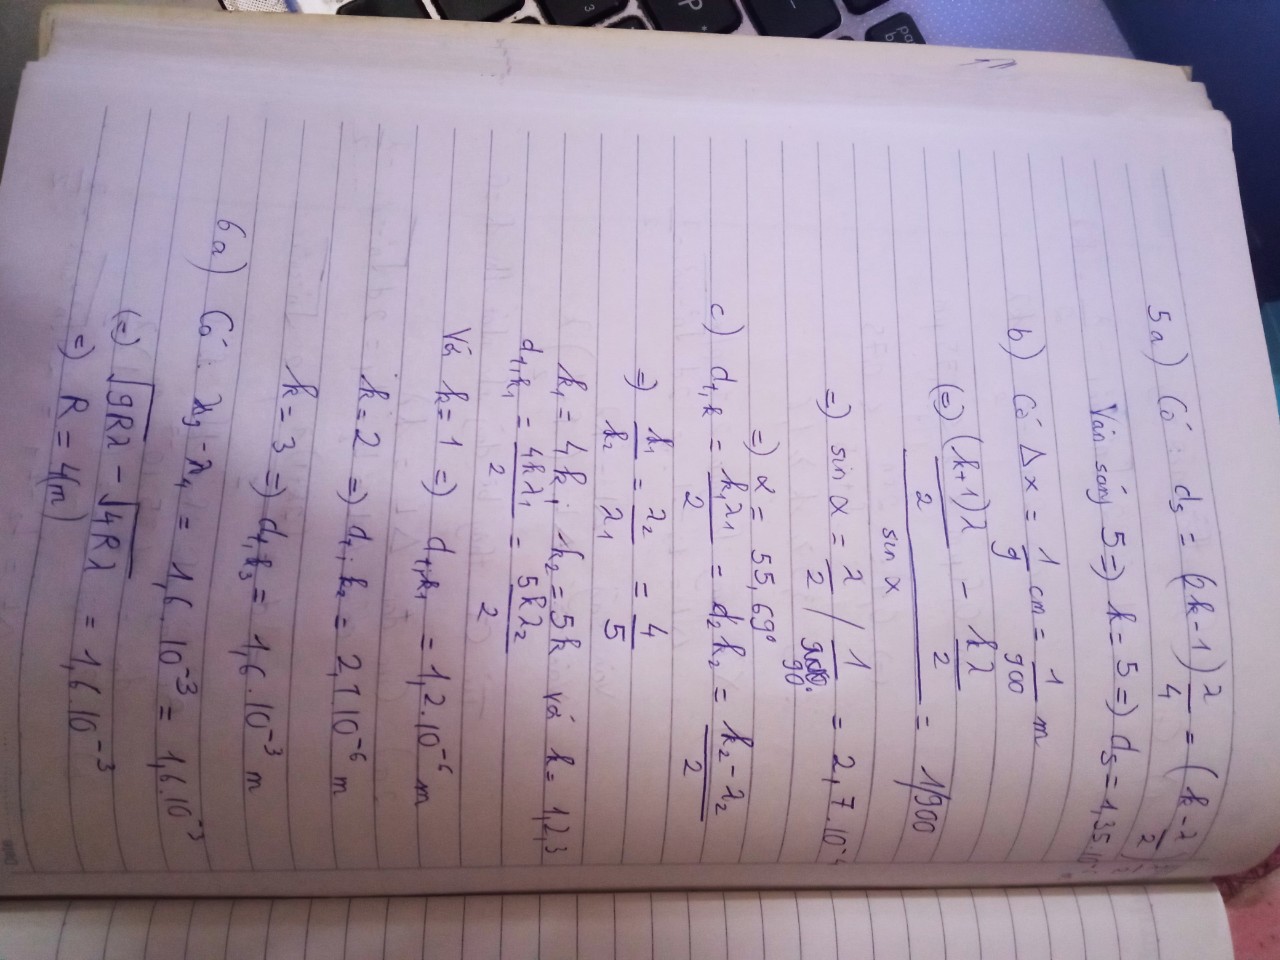 5a) Có: d₅ = (2k-1) λ/4 = (k - λ/2)
Vân sáng 5 => k = 5 => d₅ = 1,35.
b) Có Δx = 1/9 cm = 1/900 m
(=) ((k+1)λ/2 - kλ/2) / sin x = 1/900
=) sin α = λ/2 / 1/90 = 2,7.10⁻⁴
=) α = 55,69°
c) d₁,k = k₁λ₁/2 = d₂k₂ = k₂-λ₂/2
=) k₁/k₂ = λ₂/λ₁ = 4/5
k₁ = 4k; k₂ = 5k và k = 1,2,3
d₁,k₁ = 4kλ₁/2 = 5kλ₂/2
Và k = 1 =) d₁,k₁ = 1,2.10⁻⁶ m
k = 2 =) d₁,k₂ = 2,1.10⁻⁶ m
k = 3 =) d₁,k₃ = 1,6.10⁻³ m
6a) Có: λ₉ - λ₄ = 1,6.10⁻³ = 1,6.10⁻³
(=) √9Rλ - √4Rλ = 1,6.10⁻³
=) R = 4(m)